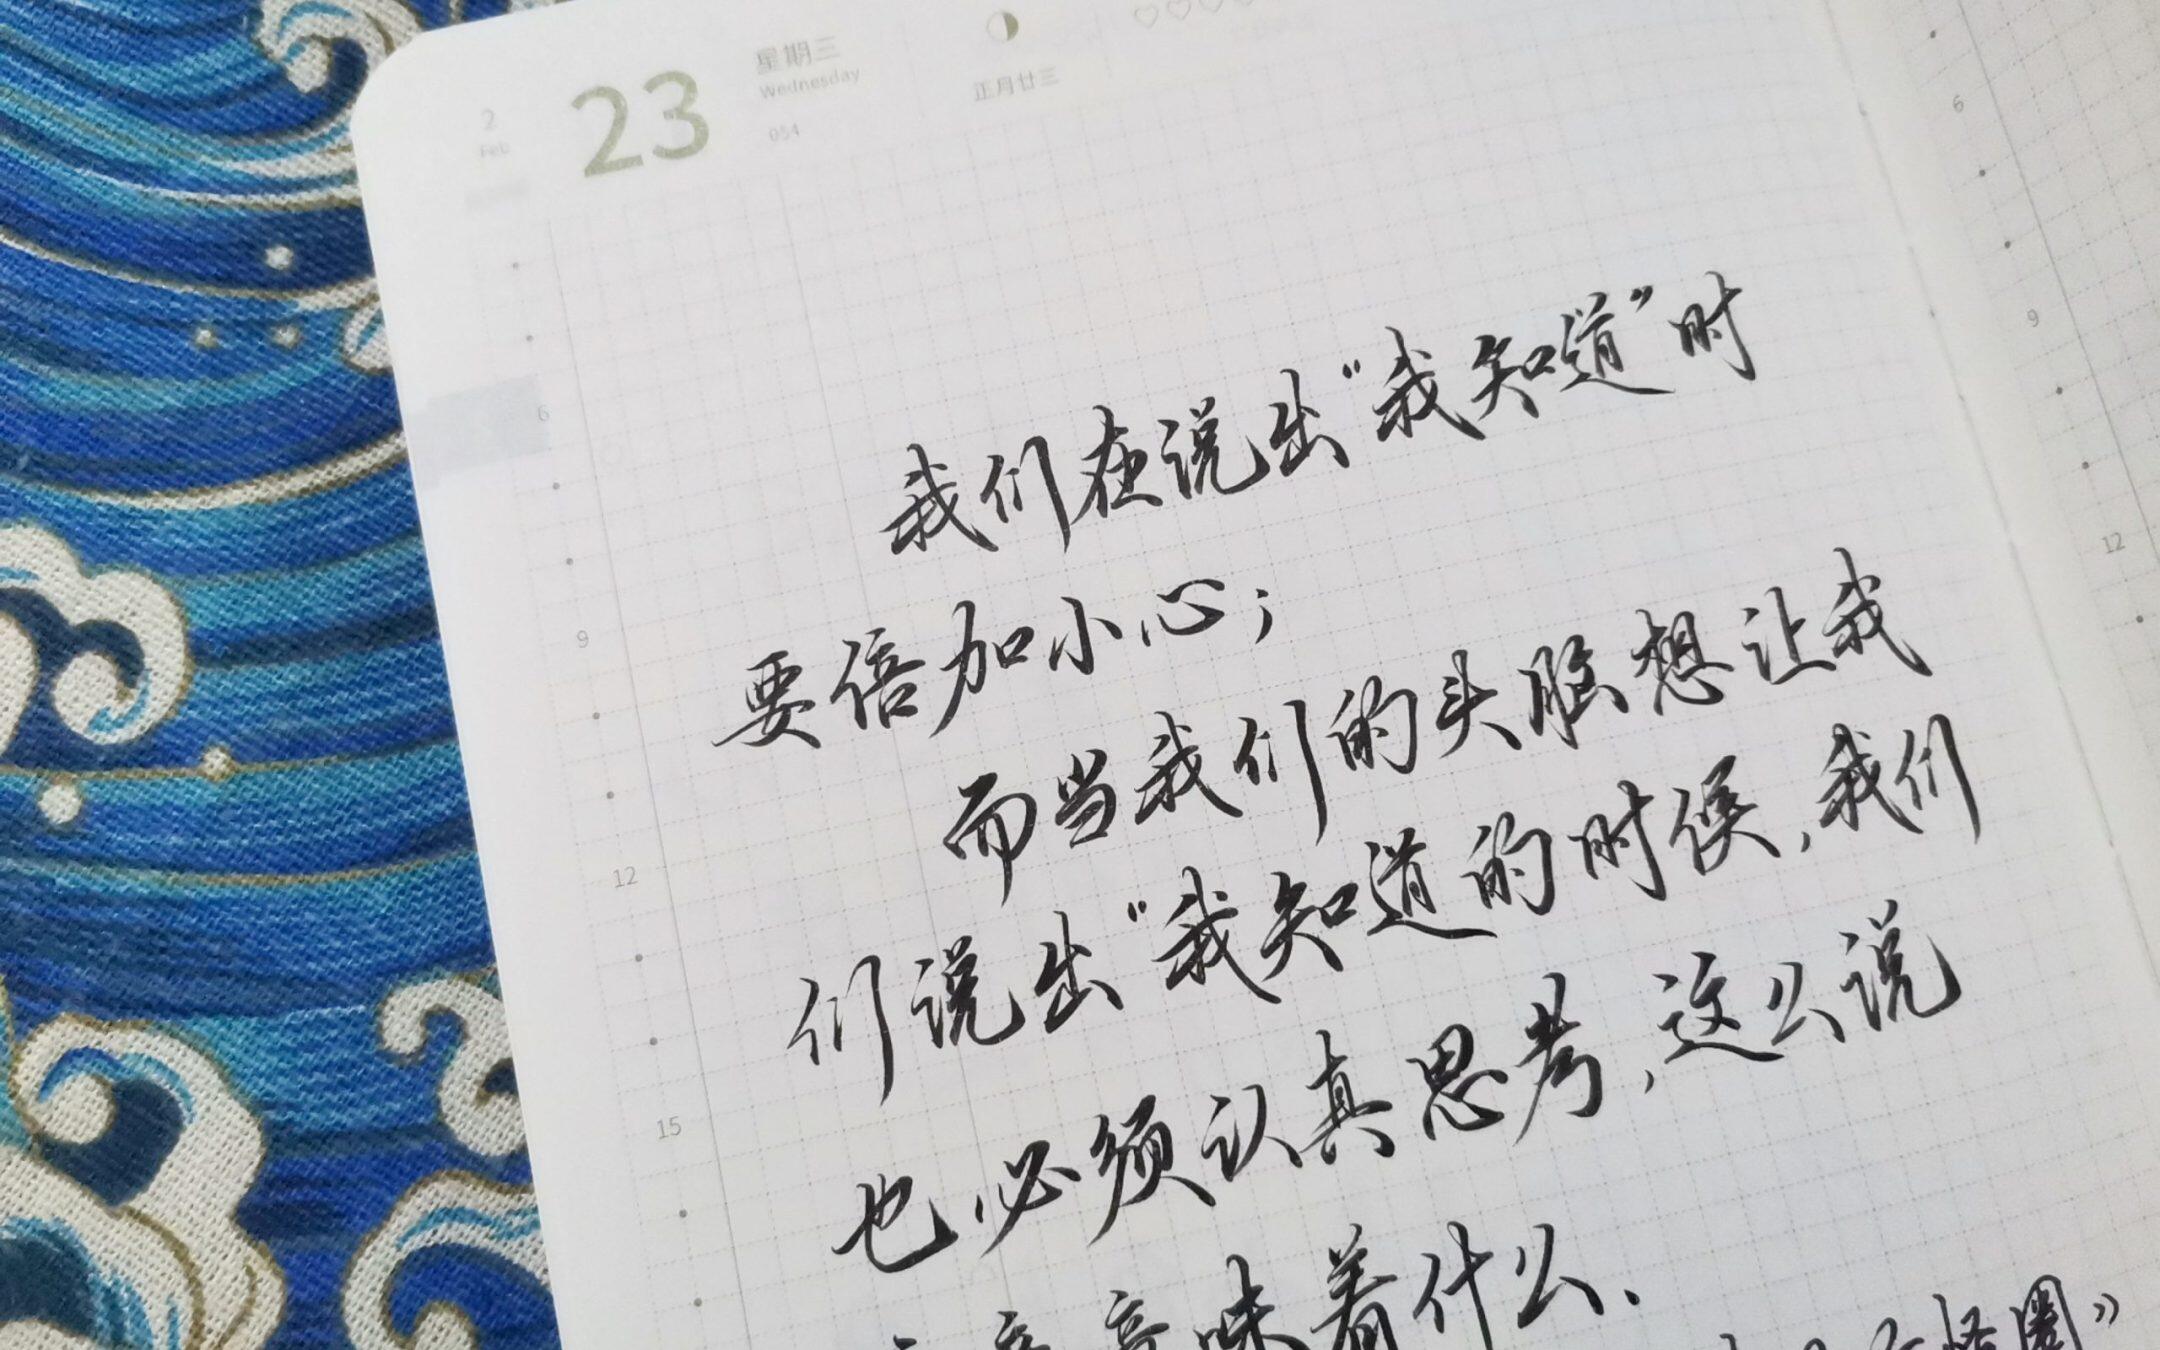 2
Feb
23
星期三
Wednesday
054
正月廿三
我们在说出“我知道”时
要倍加小心；
而当我们的头脑想让我
们说出“我知道的时候，我们
也必须认真思考，这么说
意味着什么.
怪圈》
6
9
12
15
6
9
12